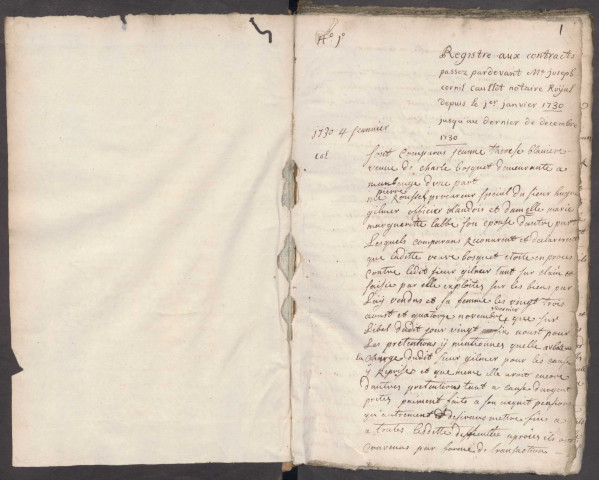 1
fo 1o
Registre aux contracts
passez pardevant Me joseph
cornil caullet notaire Royal
depuis le 1er janvier 1730
jusqu'au dernier de decembre
1730
1730 4 jeanvier
furent comparus jeanne therese
veuve de charle bosquet demeurante a
maubeuge d'une part
pierre
Roussel procureur special du sieur
gilmer officier et damelle marie
marguerite labbe son epouse d'autre part
Lesquels comparans Reconnurent et declarerent
que laditte veuve bosquet etoit en proces
contre ledit sieur gilmer tant sur
saisie par elle exploitée sur les biens par
luy vendus et sa femme les vingt trois
aoust et quatorze novembre dernier que sur
libel dudit jour vingt aoust pour
Les pretentions y mentionnes quelle
charge dudit sieur gilmer pour les causes
y Reprise et que meme elle avoit encore
d'autres pretentions tant a cause d'argent
pretez paiment faits a son acquit pensions
qu'autrement et desirans mettre fin
a toutes lesdittes difficultés
convenus par forme de transaction